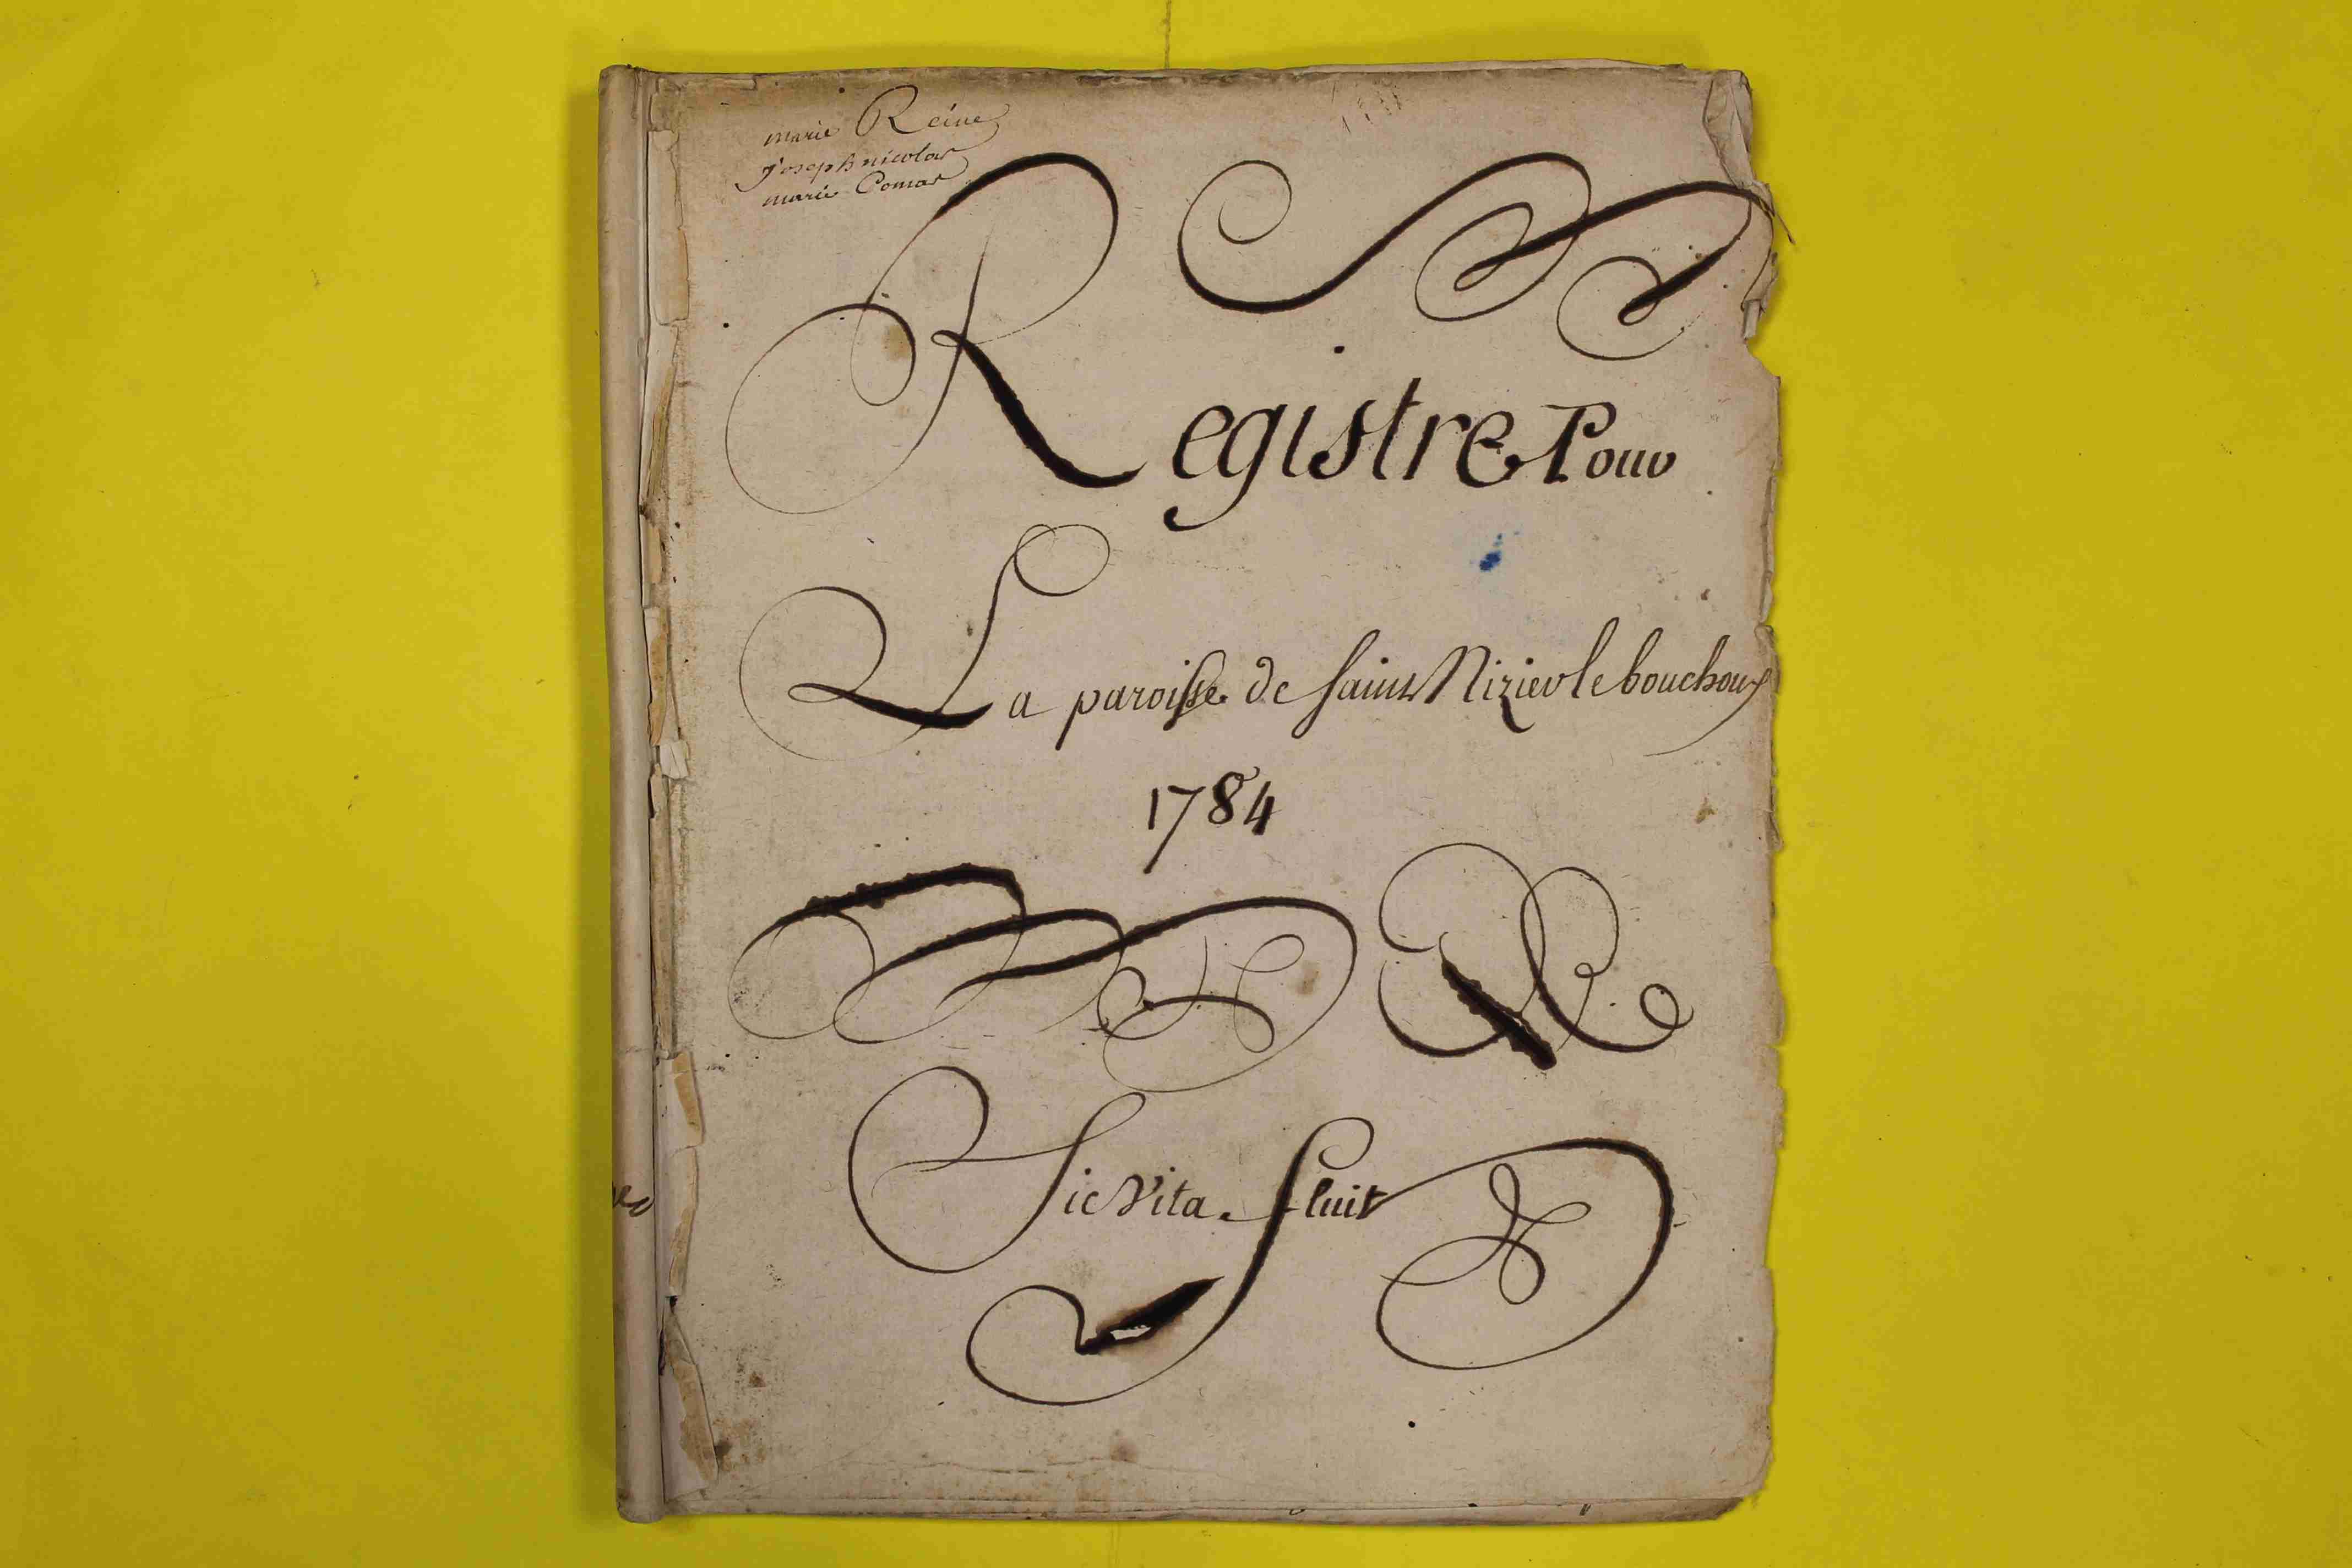 marie Reine
Joseph nicolas
marie Comas
Registre Pour
La paroisse de saint Nizier le bouchoux
1784
Sic Vita fluit